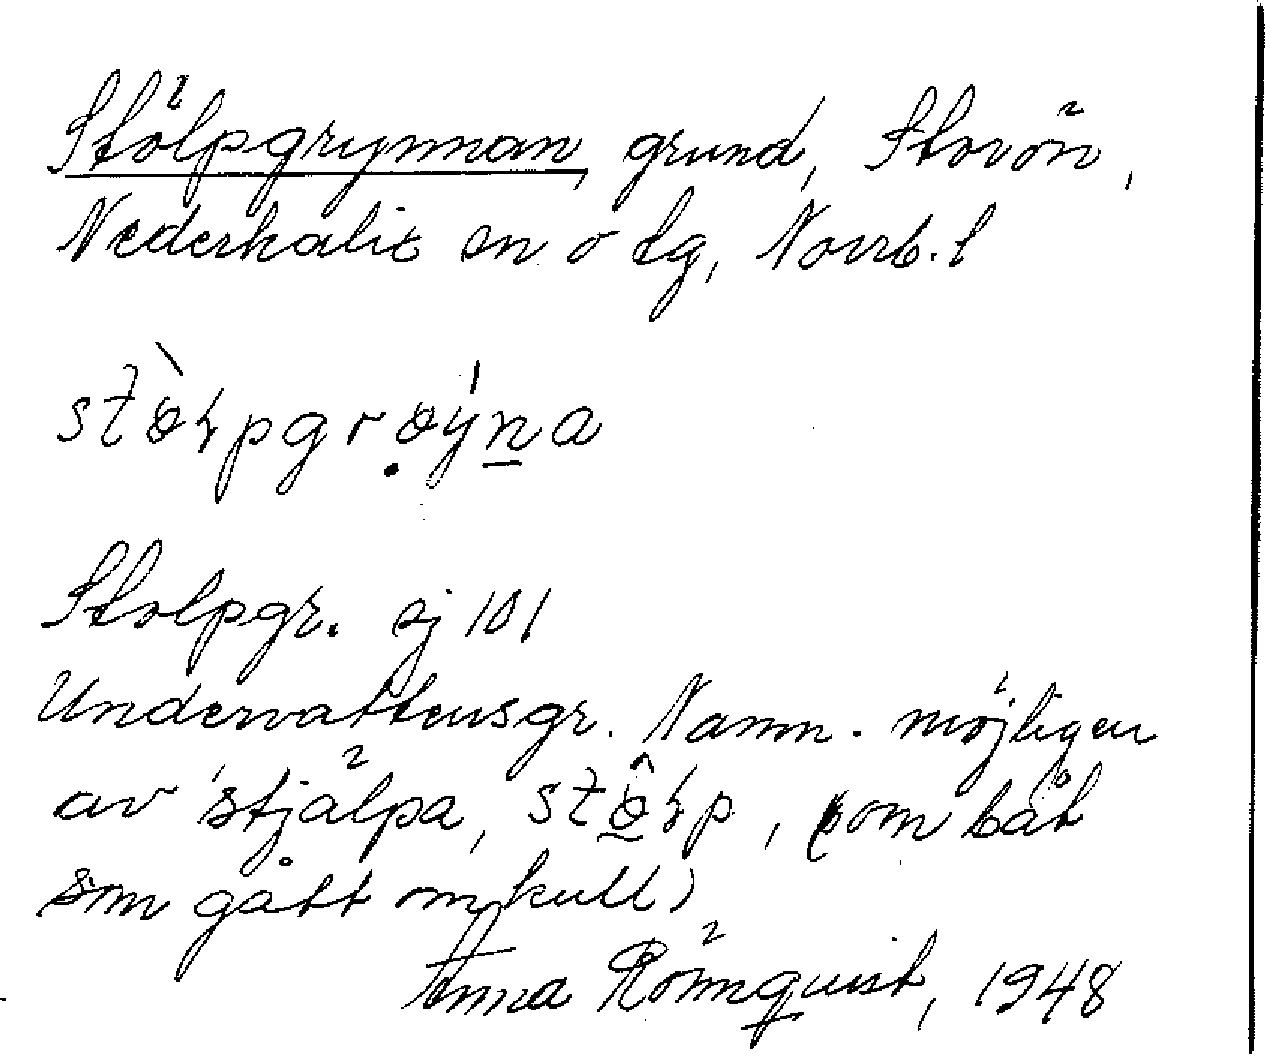 Stölpgrynnan, grund, Storön,
Nederkalix sn o tg, Norrb. l
Stölpgr. ej 101
Undervattensgr. Namn. möjligen
av stjälpa, (om båt
som gått omkull)
Anna Rönnquist, 1948